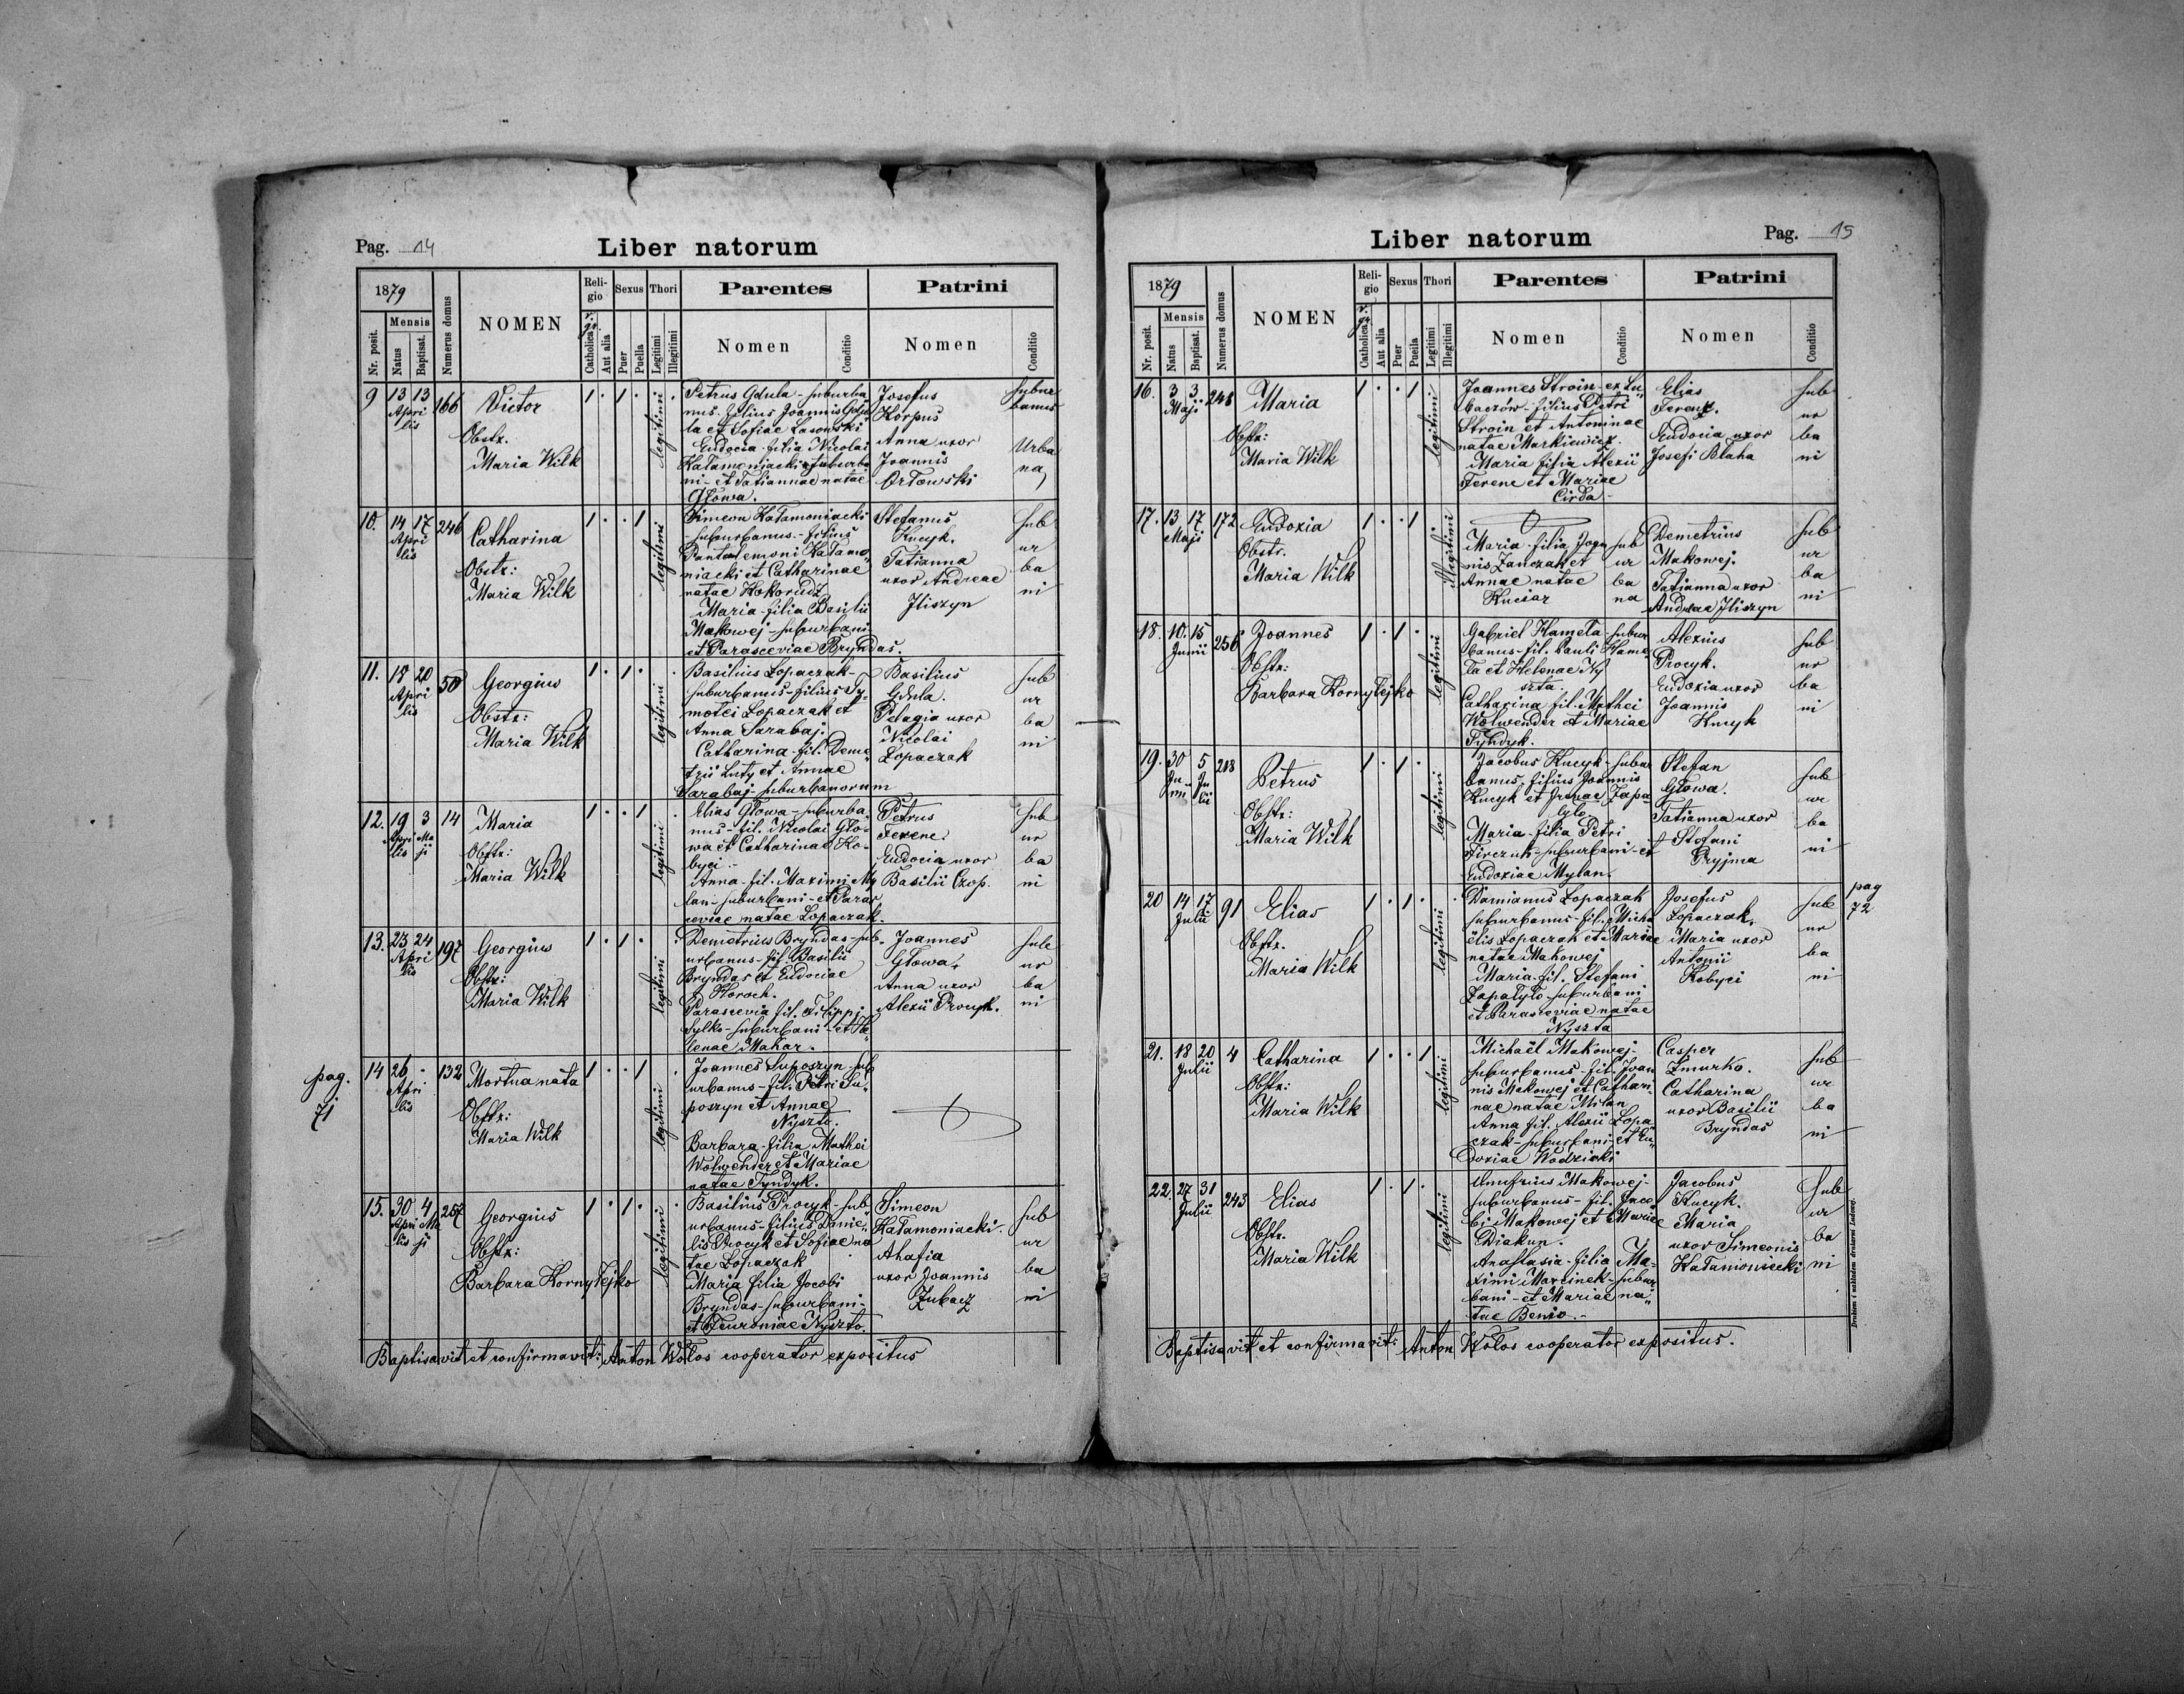 Pag. 14
Liber natorum
1879
Nr. posit.
Mensis
Natus
Baptisat.
Numerus domus
NOMEN
Reli-
gio
Catholica
Aut alia
Sexus
Puer
Puella
Thori
Legitimi
Illegitimi
Parentes
Nomen
Conditio
Patrini
Nomen
Conditio
9 13 13 166 Victor 1 . 1 .
Apri
lis
Obstr.
Maria Wilk
legitimi
Petrus Gdula - suburba
nus. filius Joannis Gdu
la et Sofiae Lasowski
Eudocia filia Nicolai
Katamoniacki suburba
ni - et Tatiannae natae
Głowa.
Josefus
Korpus
Anna uxor
Joannis
Orłowski
subur
banus
Urba
na
10. 14 17 246 Catharina 1 . . 1
Apri
lis
Obstr:
Maria Wilk
legitimi
Simeon Katamoniacki
- suburbanus - filius
Pantalemoni Katamo
niacki et Catharinae
natae Kokorudz
Maria filia Basilii
Makowej - suburbani
et Parasceviae Bryndas.
Stefanus
Kucyk.
Tatianna
uxor Andreae
Iliszyn
sub
ur
ba
ni
11. 18 20 50 Georgius 1 . 1 .
Apri
lis
Obstr:
Maria Wilk
legitimi
Basilius Lopaczak -
suburbanus - filius Ty-
motei Lopaczak et
Anna Sarabaj.
Catharina - fil. Deme
trii Luty et Annae
Sarabaj - suburbanorum
Basilius
Gdula.
Pelagia uxor
Nicolai
Lopaczak
sub
ur
ba
ni
12. 19 3 14 Maria 1 . . 1
Apri Ma
lis ji
Obstr:
Maria Wilk
legitimi
Elias Głowa - suburba
nus - fil. Nicolai Gło-
wa et Catharinae Ko-
byci -
Anna - fil. Maximi My
lan - suburbani - et Paras
ceviae natae Lopaczak.
Petrus
Ferenc
Eudocia uxor
Basilii Czop.
sub
ur
ba
ni
13. 23 24 197 Georgius 1 . 1 .
Apri
lis
Obstr:
Maria Wilk
legitimi
Demetrius Bryndas - sub
urbanus - fil. Basilii
Bryndas et Eudociae
Horoch.
Parascevia fil. Filippi
Sylko - suburbani - et He
lenae Makar.
Joannes
Głowa,
Anna uxor
Alexii Procyk.
sub
ur
ba
ni
pag.
71
14 26 - 132 Mortua nata 1 . . 1
Apri
lis
Obstr:
Maria Wilk
legitimi
Joannes Suposzyn - sub
urbanus - fil. Petri Su
poszyn et Annae
Nyszto.
Barbara - filia Mathei
Wolwender et Mariae
natae Tyndyk.
15. 30 4 257 Georgius 1 . 1 .
Apri Ma
lis ji
Obstr:
Barbara Kornyłejko
legitimi
Basilius Procyk - sub
urbanus - filius Danie
lis Procyk et Sofiae na
tae Lopaczak
Maria filia Jacobi
Bryndas - suburbani -
et Feuroniae Nyszto.
Simeon
Katamoniacki.
Ahafia
uxor Joannis
Zubacz
sub
ur
ba
ni
Baptisavit et confirmavit: Anton Wołos cooperator expositus
Liber natorum
Pag. 15
1879
Nr. posit.
Mensis
Natus
Baptisat.
Numerus domus
NOMEN
Reli-
gio
Catholica
Aut alia
Sexus
Puer
Puella
Thori
Legitimi
Illegitimi
Parentes
Nomen
Conditio
Patrini
Nomen
Conditio
16. 3 3. 248 Maria 1 . . 1
Maji
Obstr:
Maria Wilk
legitimi
Joannes Stroin - ex Lu
baczów - filius Petri
Stroin et Antoninae
natae Markiewicz.
Maria filia Alexii
Ferenc et Mariae
Cirda -
Elias
Ferenz.
Eudocia uxor
Josefi Blaha
sub
ur
ba
ni
17. 13. 17 172 Eudoxia 1 . . 1
Maji
Obstr.
Maria Wilk
illegitimi
Maria - filia Joan
nis Zanczak et
Annae natae
Kuciar
sub
ur
ba
na
Demetrius
Makowej.
Tatianna uxor
Andreae Iliszyn
sub
ur
ba
ni
18. 10. 15 256 Joannes 1 . 1 .
Junii
Obstr:
Barbara Kornyłejko
legitimi
Gabriel Hameła - subur
banus - fil. Pauli Hame
ła et Helenae Ny
szta.
Catharina fil. Mathei
Wolwender et Mariae
Tyndyk.
Alexius
Procyk.
Eudoxia uxor
Joannis
Kucyk
sub
ur
ba
ni
19. 30 5 218 Petrus 1 . 1 .
Ju Ju
nii lii
Obstr:
Maria Wilk
legitimi
Jacobus Kucyk - subur
banus - filius Joannis
Kucyk et Irenae Zapa
łyło.
Maria - filia Petri
Firczuk - suburbani - et
Eudoxiae Mylan.
Stefan
Głowa.
Tatianna uxor
Stefani
Pryjma
sub
ur
ba
ni
20 14 17 91 Elias 1 . 1 .
Julii
Obstr.
Maria Wilk
legitimi
Damianus Lopaczak
suburbanus - fil. Micha
ëlis Lopaczak et Mariae
natae Makowej
Maria - fil. Stefani
Zapałyło - suburbani
et Parasceviae natae
Nyszta
Josefus
Lopaczak,
Maria uxor
Antonii
Kobyci
sub
ur
ba
ni
pag
72
21. 18 20 4 Catharina 1 . . 1
Julii
Obstr:
Maria Wilk
legitimi
Michaël Makowej -
suburbanus - fil. Joan
nis Makowej et Cathari-
nae natae Milan
Anna fil. Alexii Lopa
czak - suburbani - et Eu
doxiae Wodzicki
Casper
Zmurko.
Catharina
uxor Basilii
Bryndas
sub
ur
ba
ni
22. 27 31 243 Elias 1 . 1 .
Julii
Obstr.
Maria Wilk
legitimi
Onufrius Makowej -
suburbanus - fil. Jaco
bi Makowej et Mariae
Diakun.
Anastasia - filia Ma-
ximi Marcinek - subur
bani - et Mariae na
tae Benio. -
Jacobus
Kucyk.
Maria
uxor Simeonis
Katamoniecki
sub
ur
ba
ni
Baptisavit et confirmavit: Anton Wołos cooperator expositus.
Drukiem i nakładem drukarni Ludowej.